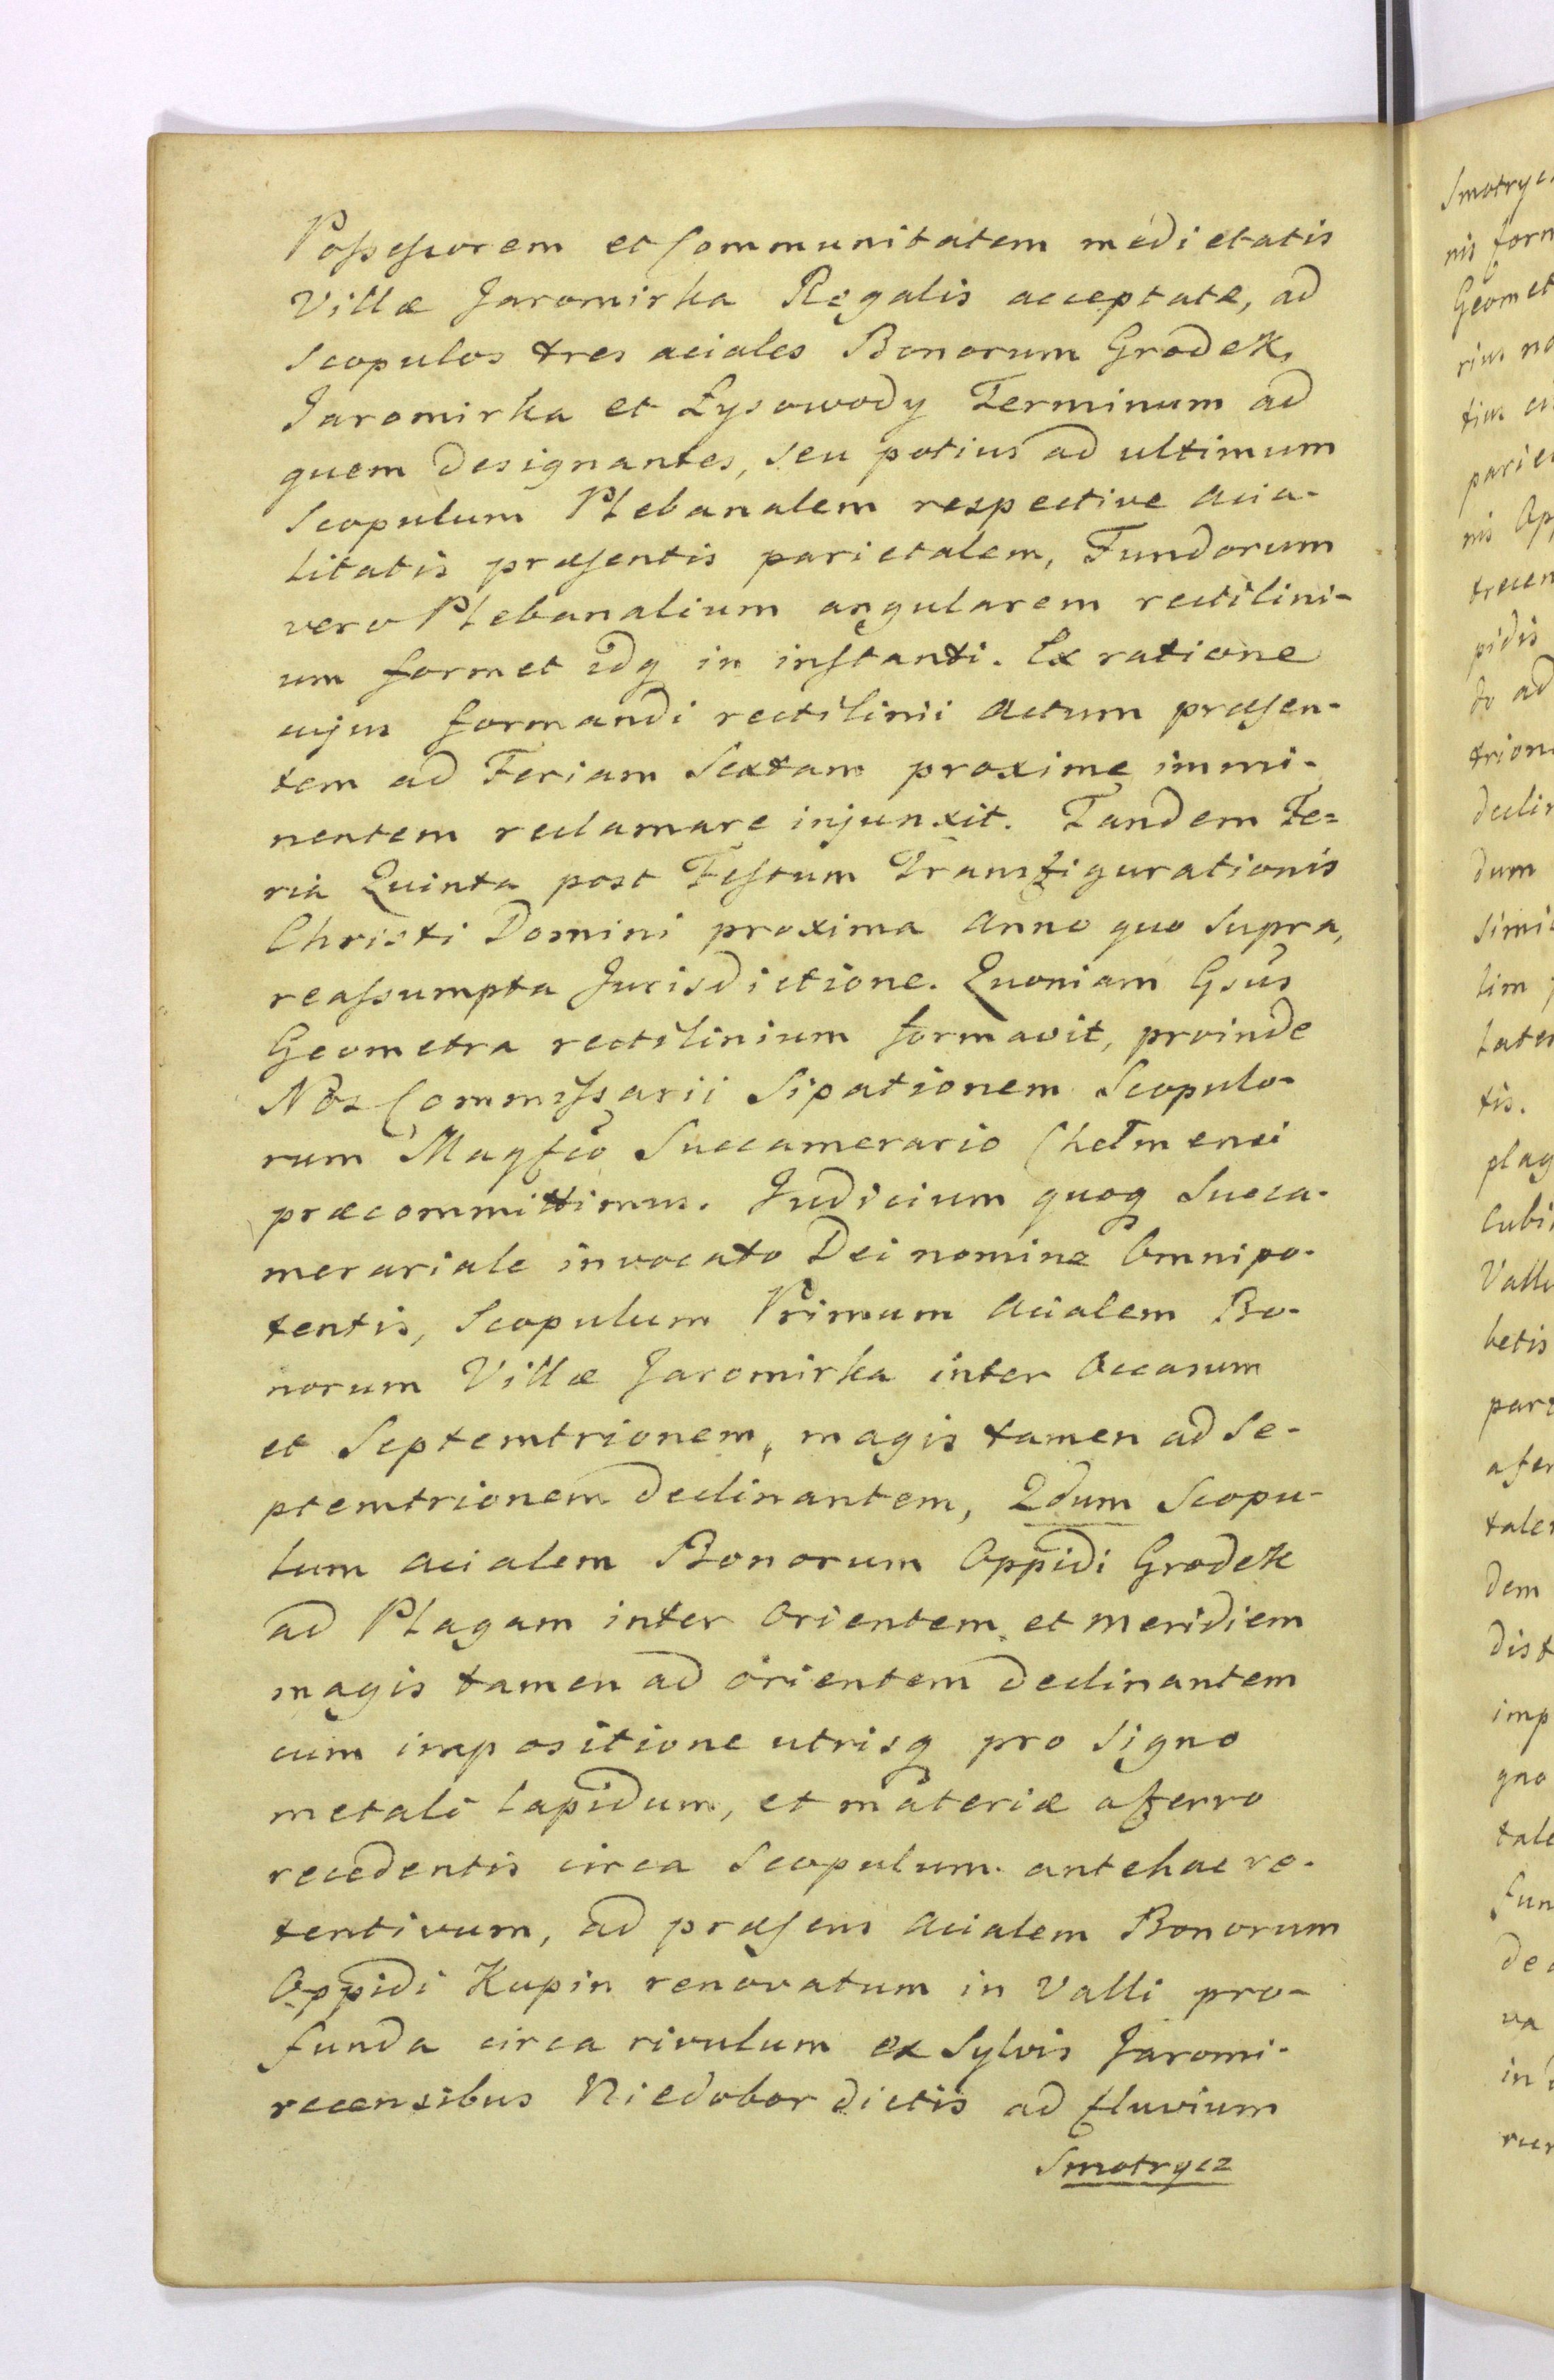 Possessorem et Communitatem medietatis
Villæ Jaromirka Regalis acceptatæ, ad
Scopulos tres aciales Bonorum Grodek,
Jaromirka et Łysowody Terminum ad
quem designantes, seu potius ad ultimum
Scopulum Plebanalem respective acia-
litatis præsentis parietalem, Fundorum
vero Plebanalium angularem rectilini-
um formet idq in instanti. Ex ratione
cujus formandi rectilinii Actum præsen-
tem ad Feriam Sextam proxime immi-
nentem reclamare injunxit. Tandem Fe=
ria Quinta post Festum Transfigurationis
Christi Domini proxima Anno quo supra,
reassumpta Jurisdictione. Quoniam Gsus
Geometra rectilinium formavit, proinde
Nos Commissarii Sipationem Scopulo-
rum Magfco Succamerario Chełmensi
præcommittimus. Judicium quoq Succa-
merariale invocato Dei nomine Omnipo-
tentis, Scopulum Primum Acialem Bo-
norum Villæ Jaromirka inter Occasum
et Septemtrionem, magis tamen ad Se-
ptemtrionem declinantem, 2dum Scopu-
lum acialem Bonorum Oppidi Grodek
ad Plagam inter Orientem et meridiem
magis tamen ad orientem declinantem
cum impositione utrisq pro Signo
metali lapidum, et materiæ a ferro
recedentis circa Scopulum antehac re-
tentivum, ad præsens Acialem Bonorum
Oppidi Kupin renovatum in Valli pro-
funda circa rivulum ex Sylvis Jaromi-
recensibus Niedobor dictis ad fluvium
Smotrycz
Smotryc
nis form
Geomet
rius no
parie
nis Op
trecen
pidis
do ad
trion
declin
dum
simi
lim
later
tis.
plag
Cubi
Valli
betis
pari
afer
tale
dem
dist
imp
gno
tale
fun
de
va
in